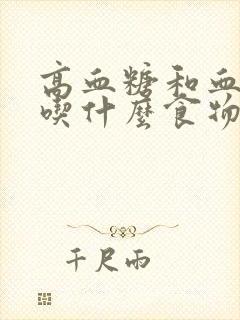 高血糖和血
喫什麼食物
千尺雨